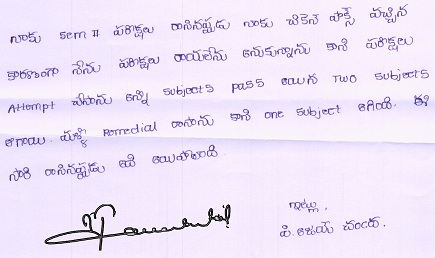 నాకు Sem II పరీక్షలు రాసినప్పుడు నాకు చికెన్ పాక్స్ వచ్చిన
కారణంగా నేను పరీక్షలు రాయలేను అనుకున్నాను కానీ పరీక్షలు
Attempt చేసాను అన్ని Subjects Pass అయిన Two Subjects
ఆగాయి. మళ్ళీ Remedial రాసాను కానీ one Subject ఆగింది. ఈ
సారి రాసినప్పుడు అది అయిపోతుంది.
ఇట్లు,
పి. అజయ్ చందర్.